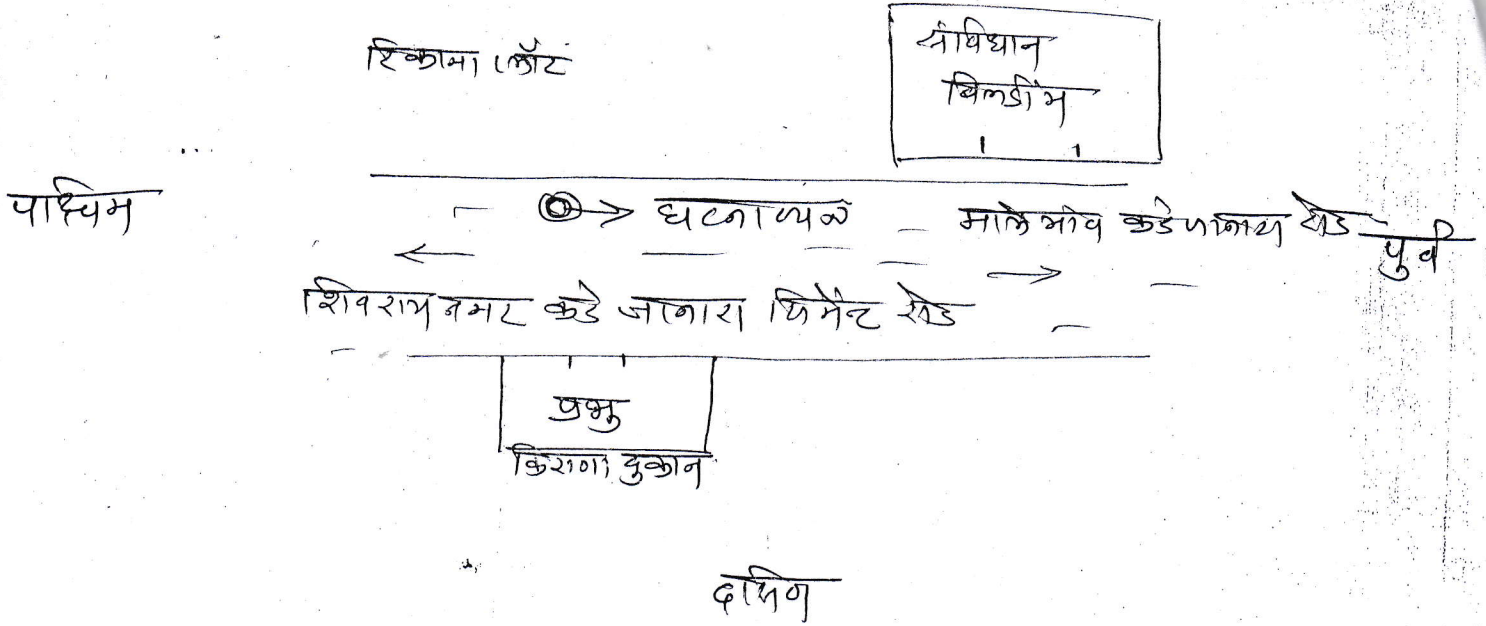 रिकामा प्लॉट
संविधान
बिल्डींग
पश्चिम
घटनास्थळ
मालेगांव कडे जानारा रोड
पुर्व
शिवराय नगर कडे जानारा सिमेंट रोड
प्रभु
किराणा दुकान
दक्षिण